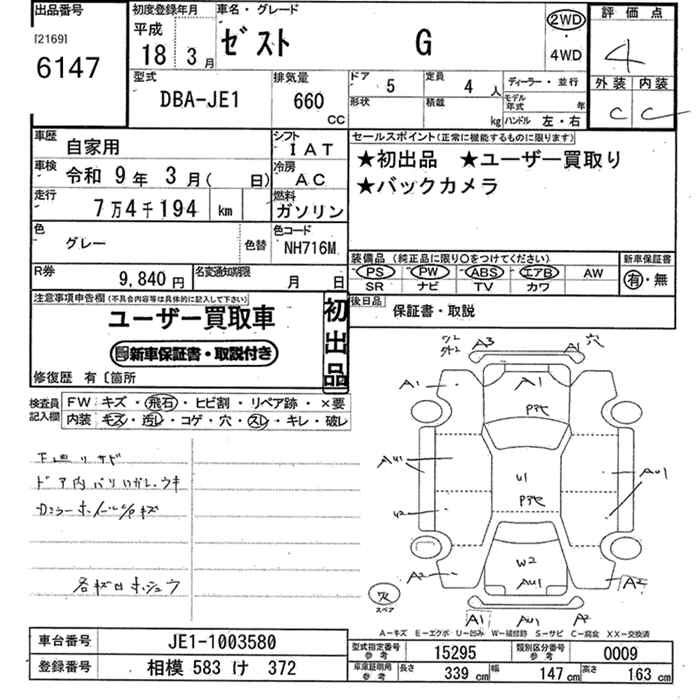 出品番号 初度登録年月 車名・グレード 評価点
[2169] 平成
6147 18 3月 ゼスト G 2WD・4WD 4
外装 内装
C C
型式 排気量 ドア 5 定員 4人 ディーラー・並行
DBA-JE1 660 CC 形状 積載 kg モデル年式 年
ハンドル 左・右
車歴 自家用 シフト IAT セールスポイント(正常に機能するものに限ります)
車検 令和 9年 3月( 日) 冷房 AC ★初出品 ★ユーザー買取り
走行 7万4千194 km 燃料 ガソリン ★バックカメラ
色 グレー 色替 色コード NH716M
装備品(純正品に限り○をつけてください) 新車保証書
PS PW ABS エアB AW 有・無
SR ナビ TV カワ
R券 9,840円 名変通知期限 月 日
後日品 保証書・取説
注意事項申告欄(不具合内容等は具体的に記入して下さい)
ユーザー買取車
新車保証書・取説付き
初出品
修復歴 有〔箇所
検査員記入欄 FW キズ・飛石・ヒビ割・リペア跡・×要
内装 キズ・汚レ・コゲ・穴・スレ・キレ・破レ
下廻リサビ
ドア内バリハガレ、ウキ
各キズ日ホシュウ
A3 A1 穴
A1 A1
AU1 U1 AU1
U2
W2
A2 AU1 A2
スペア
A1 AU3 A1
A－キズ E－エクボ U－凹み W－補修跡 S－サビ C－腐食 XX－交換済
車台番号 JE1-1003580
登録番号 相模 583 け 372
型式指定番号 参考 15295 類別区分番号 参考 0009
車庫証明用 参考 長さ 339 cm 幅 147 cm 高さ 163 cm